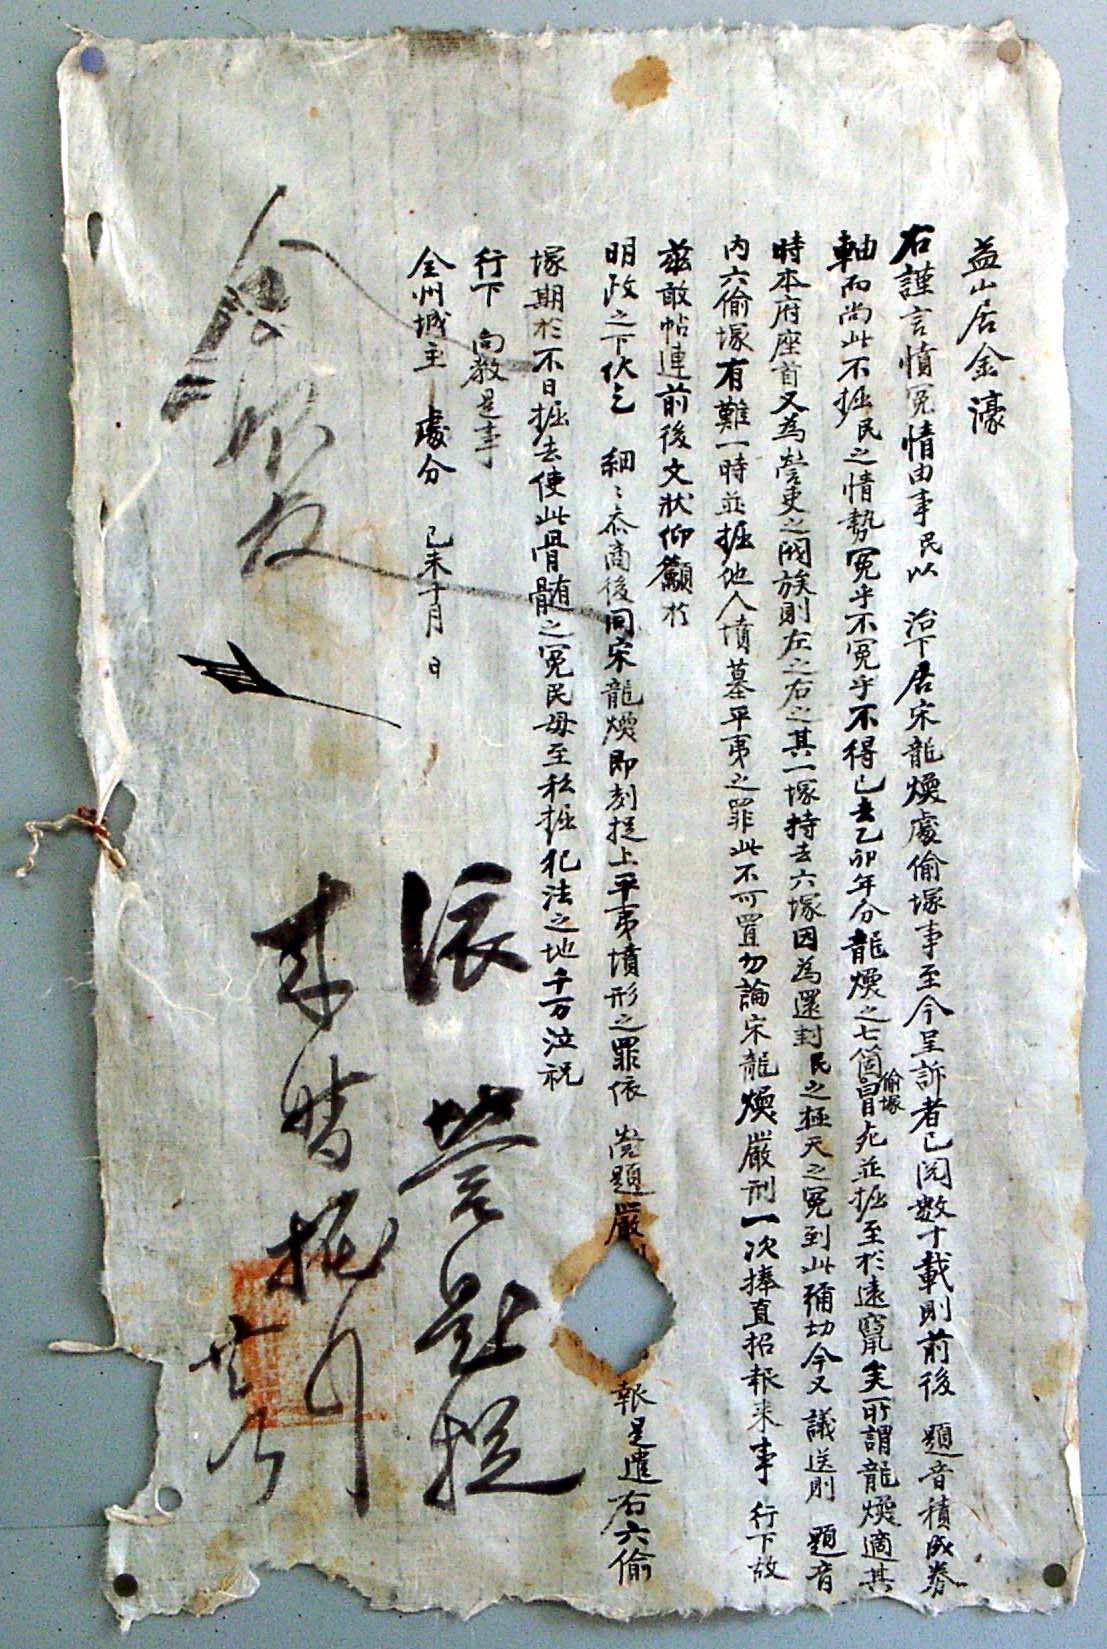 益山居金濠
右謹言憤冤情由事民以 治下居宋龍煥處偷塚事至今呈訴者已閱數十載則前後 題音積成券
軸而尚此不掘民之情勢冤乎不冤乎不得已去乙卯年分龍煥之七箇偷塚冒死並掘至於遠竄矣所謂龍煥適其
時本府座首又為營吏之閥族則左之右之其一塚持去六塚因為還封民之極天之冤到此彌切今又 議送則 題音
內六偷塚有難一時並掘他人墳墓平夷之罪此不可置勿論宋龍煥嚴刑一次捧直招報來事 行下故
玆敢帖連前後文狀仰籲於
明政之下伏乞 細〻叅商後同宋龍煥即刻捉上平夷墳形之罪依 營題嚴 報是遣右六偷
塚期於不日掘去使此骨髓之冤民毋至私掘犯法之地千万泣祝
行下 向教是事
全州城主 處分 己未十月 日
依營題捉
来督掘